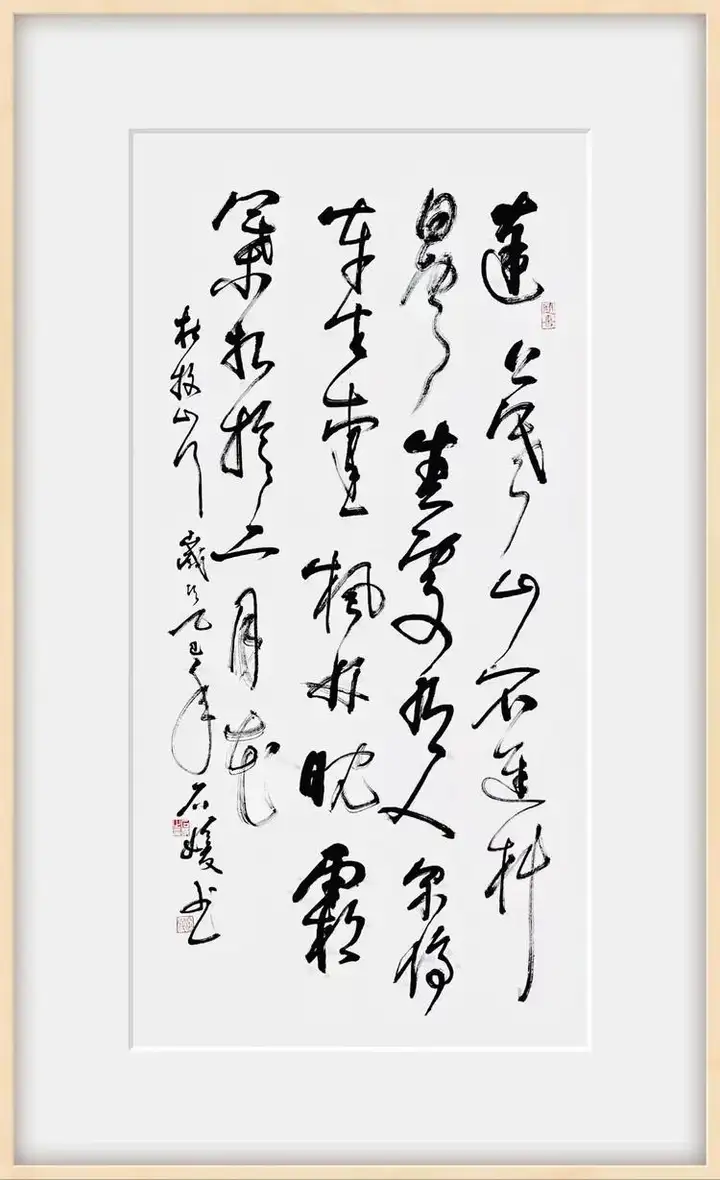 遠上寒山石徑斜
白雲生處有人家停
車坐愛楓林晚霜
葉紅於二月花
杜牧山行 歲次乙巳年 石媛书